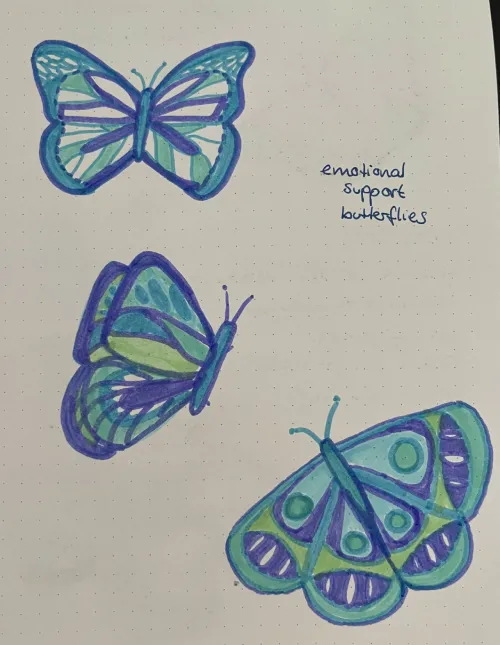 emotional
support
butterflies